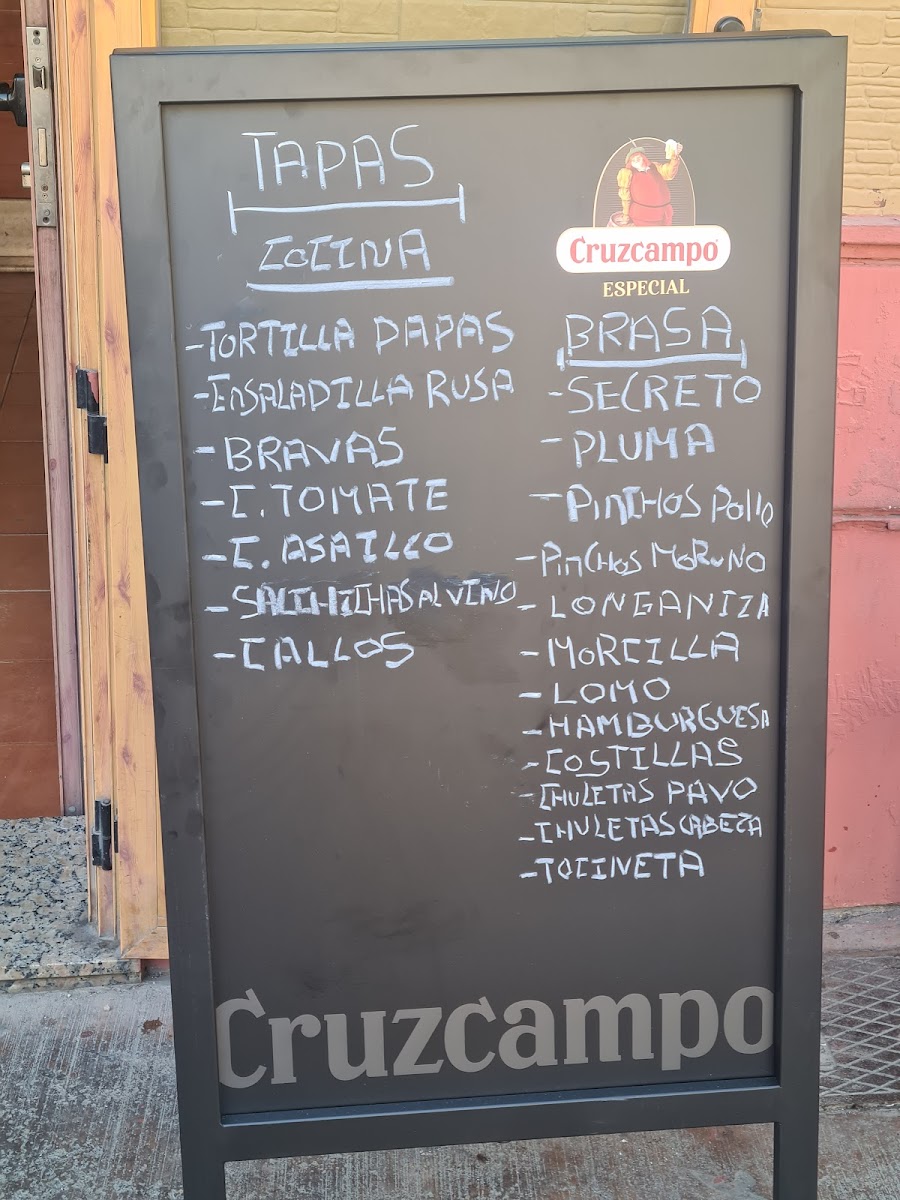 TAPAS
COCINA
-TORTILLA PAPAS
-ENSALADILLA RUSA
-BRAVAS
-C.TOMATE
-C.ASAILLO
-SALCHICHAS AL VINO
-CALLOS
Cruzcampo
ESPECIAL
BRASA
-SECRETO
-PLUMA
-PINCHOS POLLO
-PINCHOS MORUNO
-LONGANIZA
-MORCILLA
-LOMO
-HAMBURGUESA
-COSTILLAS
-CHULETAS PAVO
-CHULETAS CABEZA
-TOCINETA
Cruzcampo